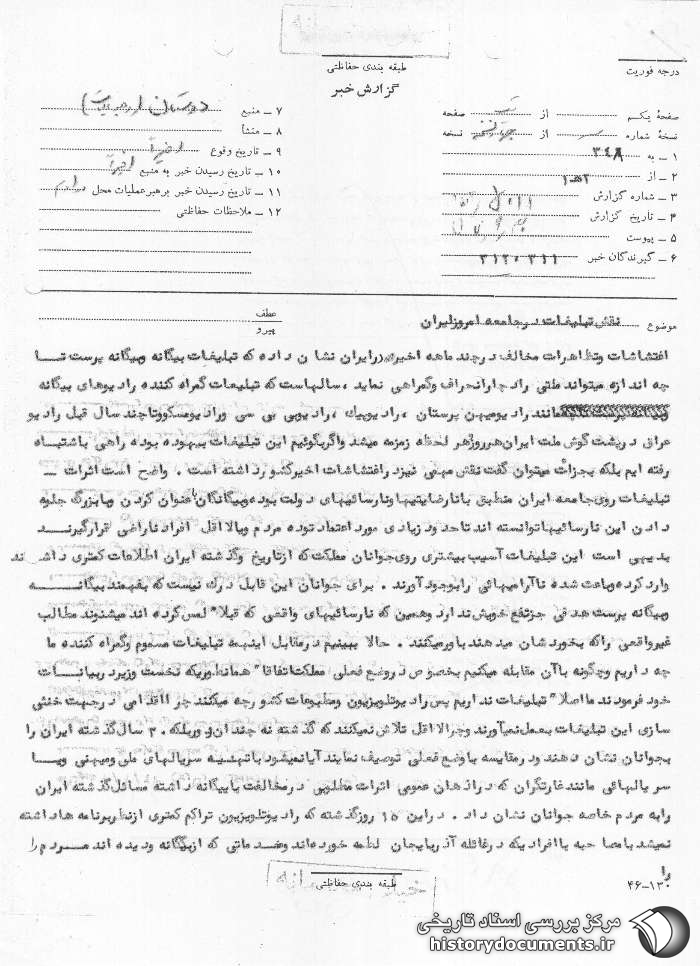 طبقه بندی حفاظتی
گزارش خبر
درجه فوریت
صفحهٔ یکم از صفحه
نسخهٔ شماره از نسخه
۱ ـ به ۳۴۸
۲ ـ از ۲هـ۱
۳ ـ شماره گزارش
۴ ـ تاریخ گزارش
۵ ـ پیوست
۶ ـ گیرندگان خبر ۳۱۱ ۳۱۲۰
۷ ـ منبع دوستان
۸ ـ منشأ
۹ ـ تاریخ وقوع اخیراً
۱۰ ـ تاریخ رسیدن خبر به منبع اخیراً
۱۱ ـ تاریخ رسیدن خبر برهبر عملیات محل
۱۲ ـ ملاحظات حفاظتی
موضوع نقش تبلیغات در جامعه امروز ایران
عطف
پیرو
اغتشاشات و تظاهرات مخالف در چند ماهه اخیر در ایران نشان داده که تبلیغات بیگانه و بیگانه پرست تـــا
چه اندازه میتواند ملتی را دچار انحراف و گمراهی نماید ، سالهاست که تبلیغات گمراه کننده رادیوهای بیگانه
مانند رادیو میهن پرستان ، رادیو پیک ، رادیو بی بی سی و رادیو مسکو و تا چند سال قبل رادیو
عراق در پشت گوش ملت ایران هر روز و هر لحظه زمزمه میشد و اگر بگوئیم این تبلیغات بیهوده بوده راهی باشتباه
رفته ایم بلکه بجرأت میتوان گفت نقش مهمی نیز در اغتشاشات اخیر کشور داشته است . واضح است اثرات ـ
تبلیغات روی جامعه ایران منطبق با نارضایتیها و نارسائیهای دولت بوده و بیگانگان با عنوان کردن و با بزرگ جلوه
دادن این نارسائیها توانسته اند تا حدود زیادی مورد اعتماد توده مردم و یا لااقل افراد ناراضی قرار گیرنــد
بدیهی است این تبلیغات آسیب بیشتری روی جوانان مملکت که از تاریخ و گذشته ایران اطلاعات کمتری داشتـ ند
وارد کرده و باعث شده ناآرامیهائی را بوجود آورند . برای جوانان این قابل درک نیست که بفهمند بیگانــــه
و بیگانه پرست هدفی جز نفع خویش ندارد و همین که نارسائیهای واقعی که قبلا" لمس کرده اند میشنوند مطالب
غیر واقعی را که بخوردشان میدهند باور میکنند . حالا ببینیم در مقابل اینهمه تبلیغات مسموم و گمراه کننده ما
چه داریم و چگونه با آن مقابله میکنیم بخصوص در وضع فعلی مملکت اتفاقا" همانطوریکه نخست وزیر در بیانــات
خود فرمودند ما اصلا" تبلیغات نداریم پس رادیو تلویزیون و مطبوعات کشور چه میکنند چرا اقدامی در جهت خنثی
سازی این تبلیغات بعمل نمیآورند و چرا لااقل تلاش نمیکنند که گذشته نه چندان دور و بلکه ۳۰ سال گذشته ایران را
بجوانان نشان دهند و در مقایسه با وضع فعلی توصیف نمایند آیا نمیشود با تهیــه سریالهای ملی و میهنی ویــا
سریالهائی مانند غارتگران که در اذهان عمومی اثرات مطلوبی در مخالفت با بیگانه داشته مسائل گذشته ایران
را به مردم خاصه جوانان نشان داد . در این ۱۵ روز گذشته که رادیو تلویزیون تراکم کمتری از نظر برنامه ها داشته
نمیشد با مصاحبه با افرادیکه در غائله آذربایجان لطمه خورده اند و صدماتی که از بیگانه و دیده اند مــردم را
را
طبقه بندی حفاظتی
۴۶-۱۳۰
مرکز بررسی اسناد تاریخی
historydocuments.ir